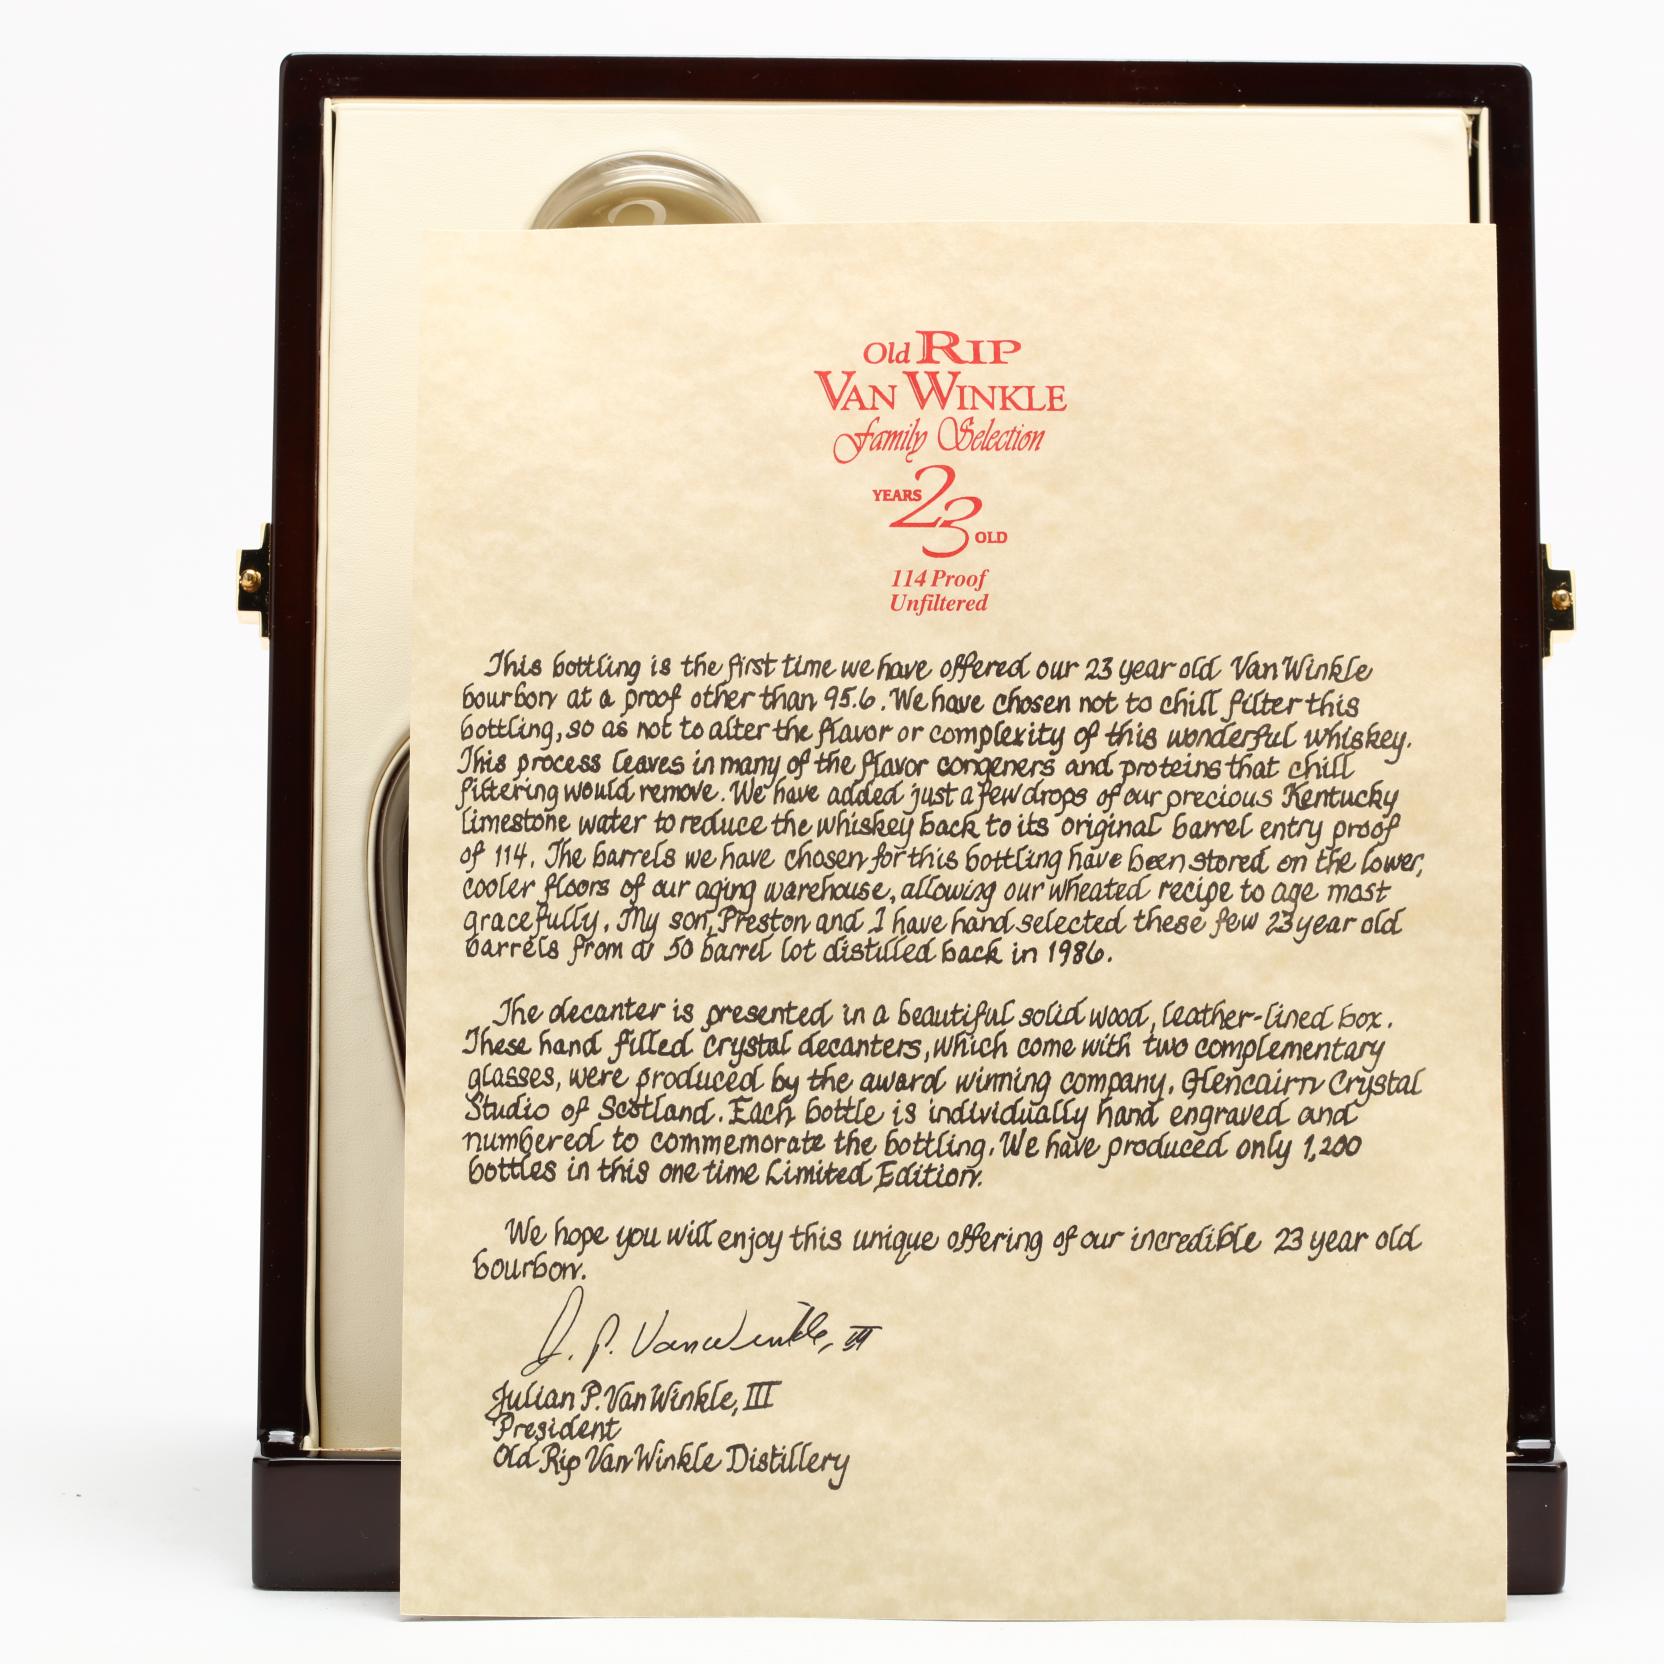 Old RIP
VAN WINKLE
Family Selection
YEARS 23 OLD
114 Proof
Unfiltered
This bottling is the first time we have offered our 23 year old Van Winkle
bourbon at a proof other than 95.6. We have chosen not to chill filter this
bottling, so as not to alter the flavor or complexity of this wonderful whiskey.
This process leaves in many of the flavor congeners and proteins that chill
filtering would remove. We have added just a few drops of our precious Kentucky
limestone water to reduce the whiskey back to its original barrel entry proof
of 114. The barrels we have chosen for this bottling have been stored on the lower,
cooler floors of our aging warehouse, allowing our wheated recipe to age most
gracefully. My son, Preston and I have hand selected these few 23 year old
barrels from a 50 barrel lot distilled back in 1986.
The decanter is presented in a beautiful solid wood, leather-lined box.
These hand filled crystal decanters, which come with two complementary
glasses, were produced by the award winning company, Glencairn Crystal
Studio of Scotland. Each bottle is individually hand engraved and
numbered to commemorate the bottling. We have produced only 1,200
bottles in this one time Limited Edition.
We hope you will enjoy this unique offering of our incredible 23 year old
bourbon.
J. P. Van Winkle, III
Julian P. Van Winkle, III
President
Old Rip Van Winkle Distillery